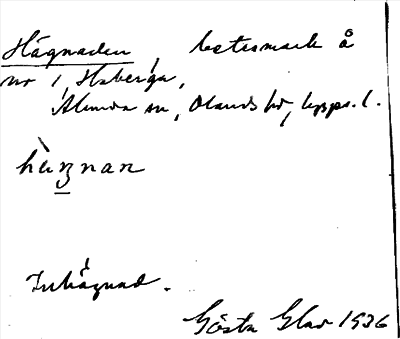 Hägnaden, betesmark å
nr 1, Haberga,
Alunda sn, Olands hd, Upps. l.
hàgnan
Inhägnad.
Gösta Glas 1936